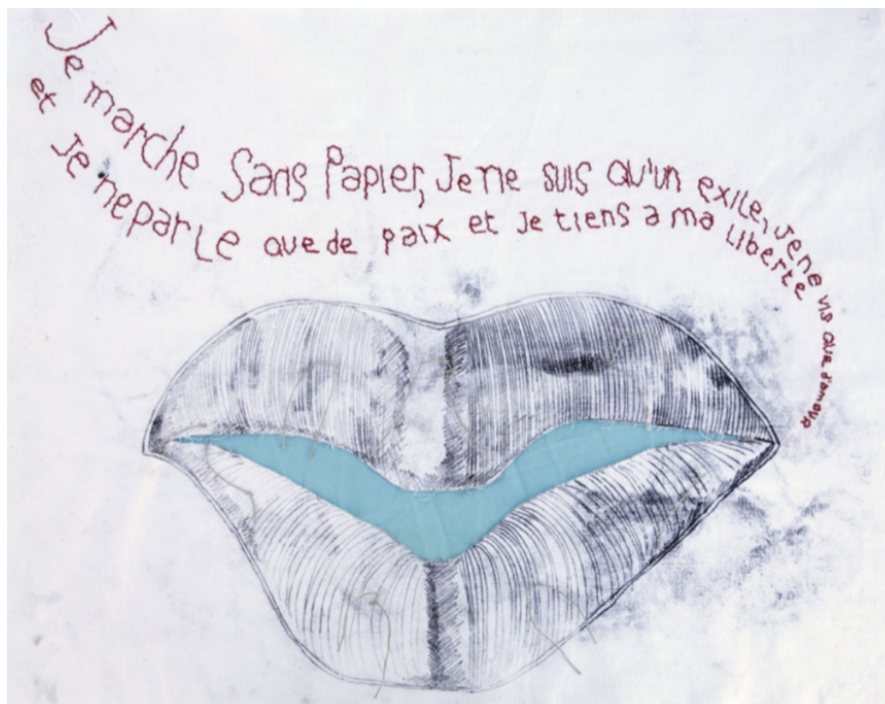 Je marche Sans Papier, Je ne suis qu'un exile, Je ne vis que d'amour
et Je ne parle que de paix et Je tiens a ma liberte